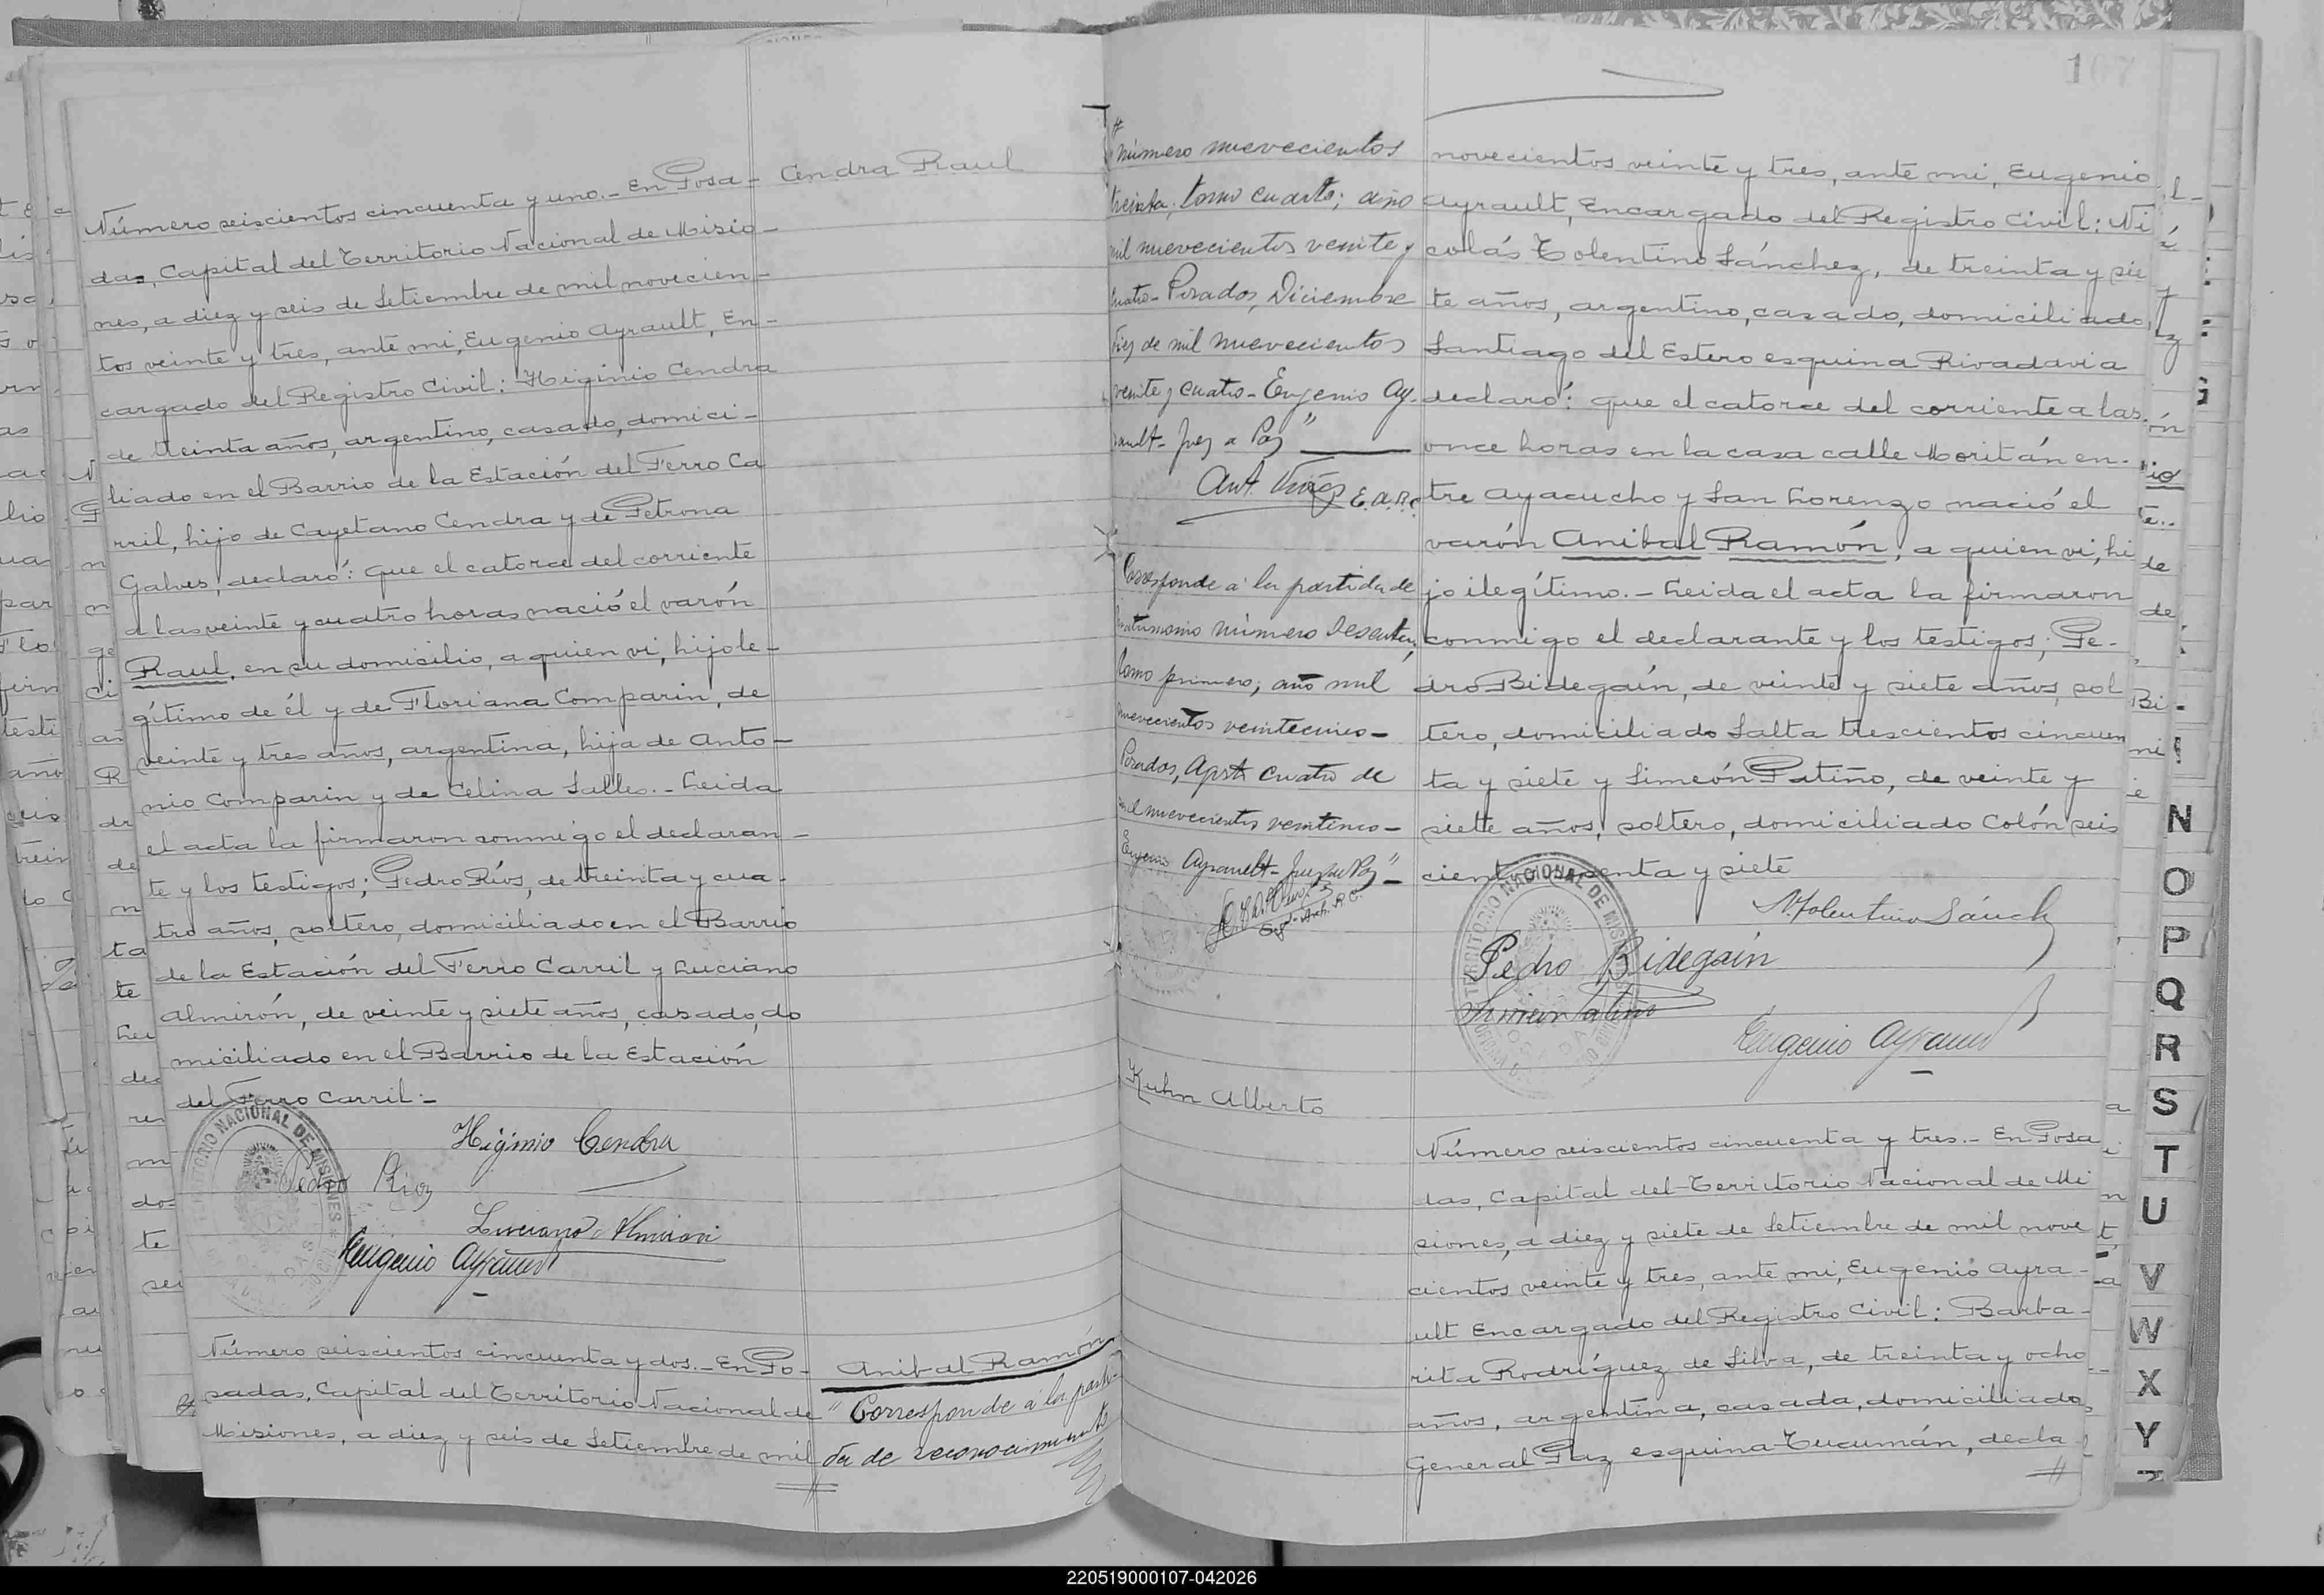 Cendra Raul
Número seiscientos cincuenta y uno. - En Posa-
das, Capital del Territorio Nacional de Misio-
nes, a diez y seis de Setiembre de mil novecien-
tos veinte y tres, ante mi, Eugenio Ayrault, En-
cargado del Registro Civil: Higinio Cendra
de treinta años, argentino, casado, domici-
liado en el Barrio de la Estación del Ferro Ca
rril, hijo de Cayetano Cendra y de Petrona
Galves, declaró: que el catorce del corriente
a las veinte y cuatro horas nació el varón
Raul, en su domicilio, a quien vi, hijo le-
gítimo de él y de Floriana Comparin, de
veinte y tres años, argentina, hija de Anto-
nio Comparin y de Celina Salles. - Leida
el acta la firmaron conmigo el declaran-
te y los testigos; Pedro Ríos, de treinta y cua-
tro años, soltero, domiciliado en el Barrio
de la Estación del Ferro Carril y Luciano
Almirón, de veinte y siete años, casado, do
miciliado en el Barrio de la Estación
del Ferro Carril. -
Higinio Cendra
Pedro Rios
Luciano Almiron
Eugenio Ayrault
Número seiscientos cincuenta y dos. - En Po-
sadas, Capital del Territorio Nacional de
Misiones, a diez y seis de Setiembre de mil
Anibal Ramón
"Corresponde á la parti-
da de reconocimiento
167
número nuevecientos
treinta; tomo cuarto; año
mil nuevecientos veinte y
cuatro - Posadas, Diciembre
diez de mil nuevecientos
veinte y cuatro - Eugenio Ay-
rault - Juez de Paz"
E.A.R.C.
Corresponde á la partida de
matrimonio número Sesenta;
tomo primero; año mil
nuevecientos veinticinco -
Posadas, Agosto cuatro de
mil nuevecientos veinticinco -
Eugenio Ayrault - Juez de Paz" -
novecientos veinte y tres, ante mi, Eugenio
Ayrault, Encargado del Registro Civil: Ni
colás Tolentino Sánchez, de treinta y sie
te años, argentino, casado, domiciliado
Santiago del Estero esquina Rivadavia
declaró: que el catorce del corriente a las
once horas en la casa calle Moritán en-
tre Ayacucho y San Lorenzo nació el
varón Anibal Ramón, a quien vi, hi
jo ilegítimo. - Leida el acta la firmaron
conmigo el declarante y los testigos; Pe-
dro Bidegaín, de veinte y siete años, sol
tero, domiciliado Salta trescientos cincuen
ta y siete y Simeón Patiño, de veinte y
siete años, soltero, domiciliado Colón seis
cientos y siete
N. Tolentino Sánch
Pedro Bidegaín
Simeon Patiño
Eugenio Ayrault
TERRITORIO NACIONAL DE MISIONES
Kuhn Alberto
Número seiscientos cincuenta y tres. - En Posa
das, Capital del Territorio Nacional de Mi
siones, a diez y siete de Setiembre de mil nove
cientos veinte y tres, ante mi, Eugenio Ayra-
ult Encargado del Registro Civil: Barba-
rita Rodríguez de Silva, de treinta y ocho
años, argentina, casada, domiciliada
General Paz esquina Tucumán, decla
N
O
P
Q
R
S
T
U
V
W
X
Y
220519000107-042026